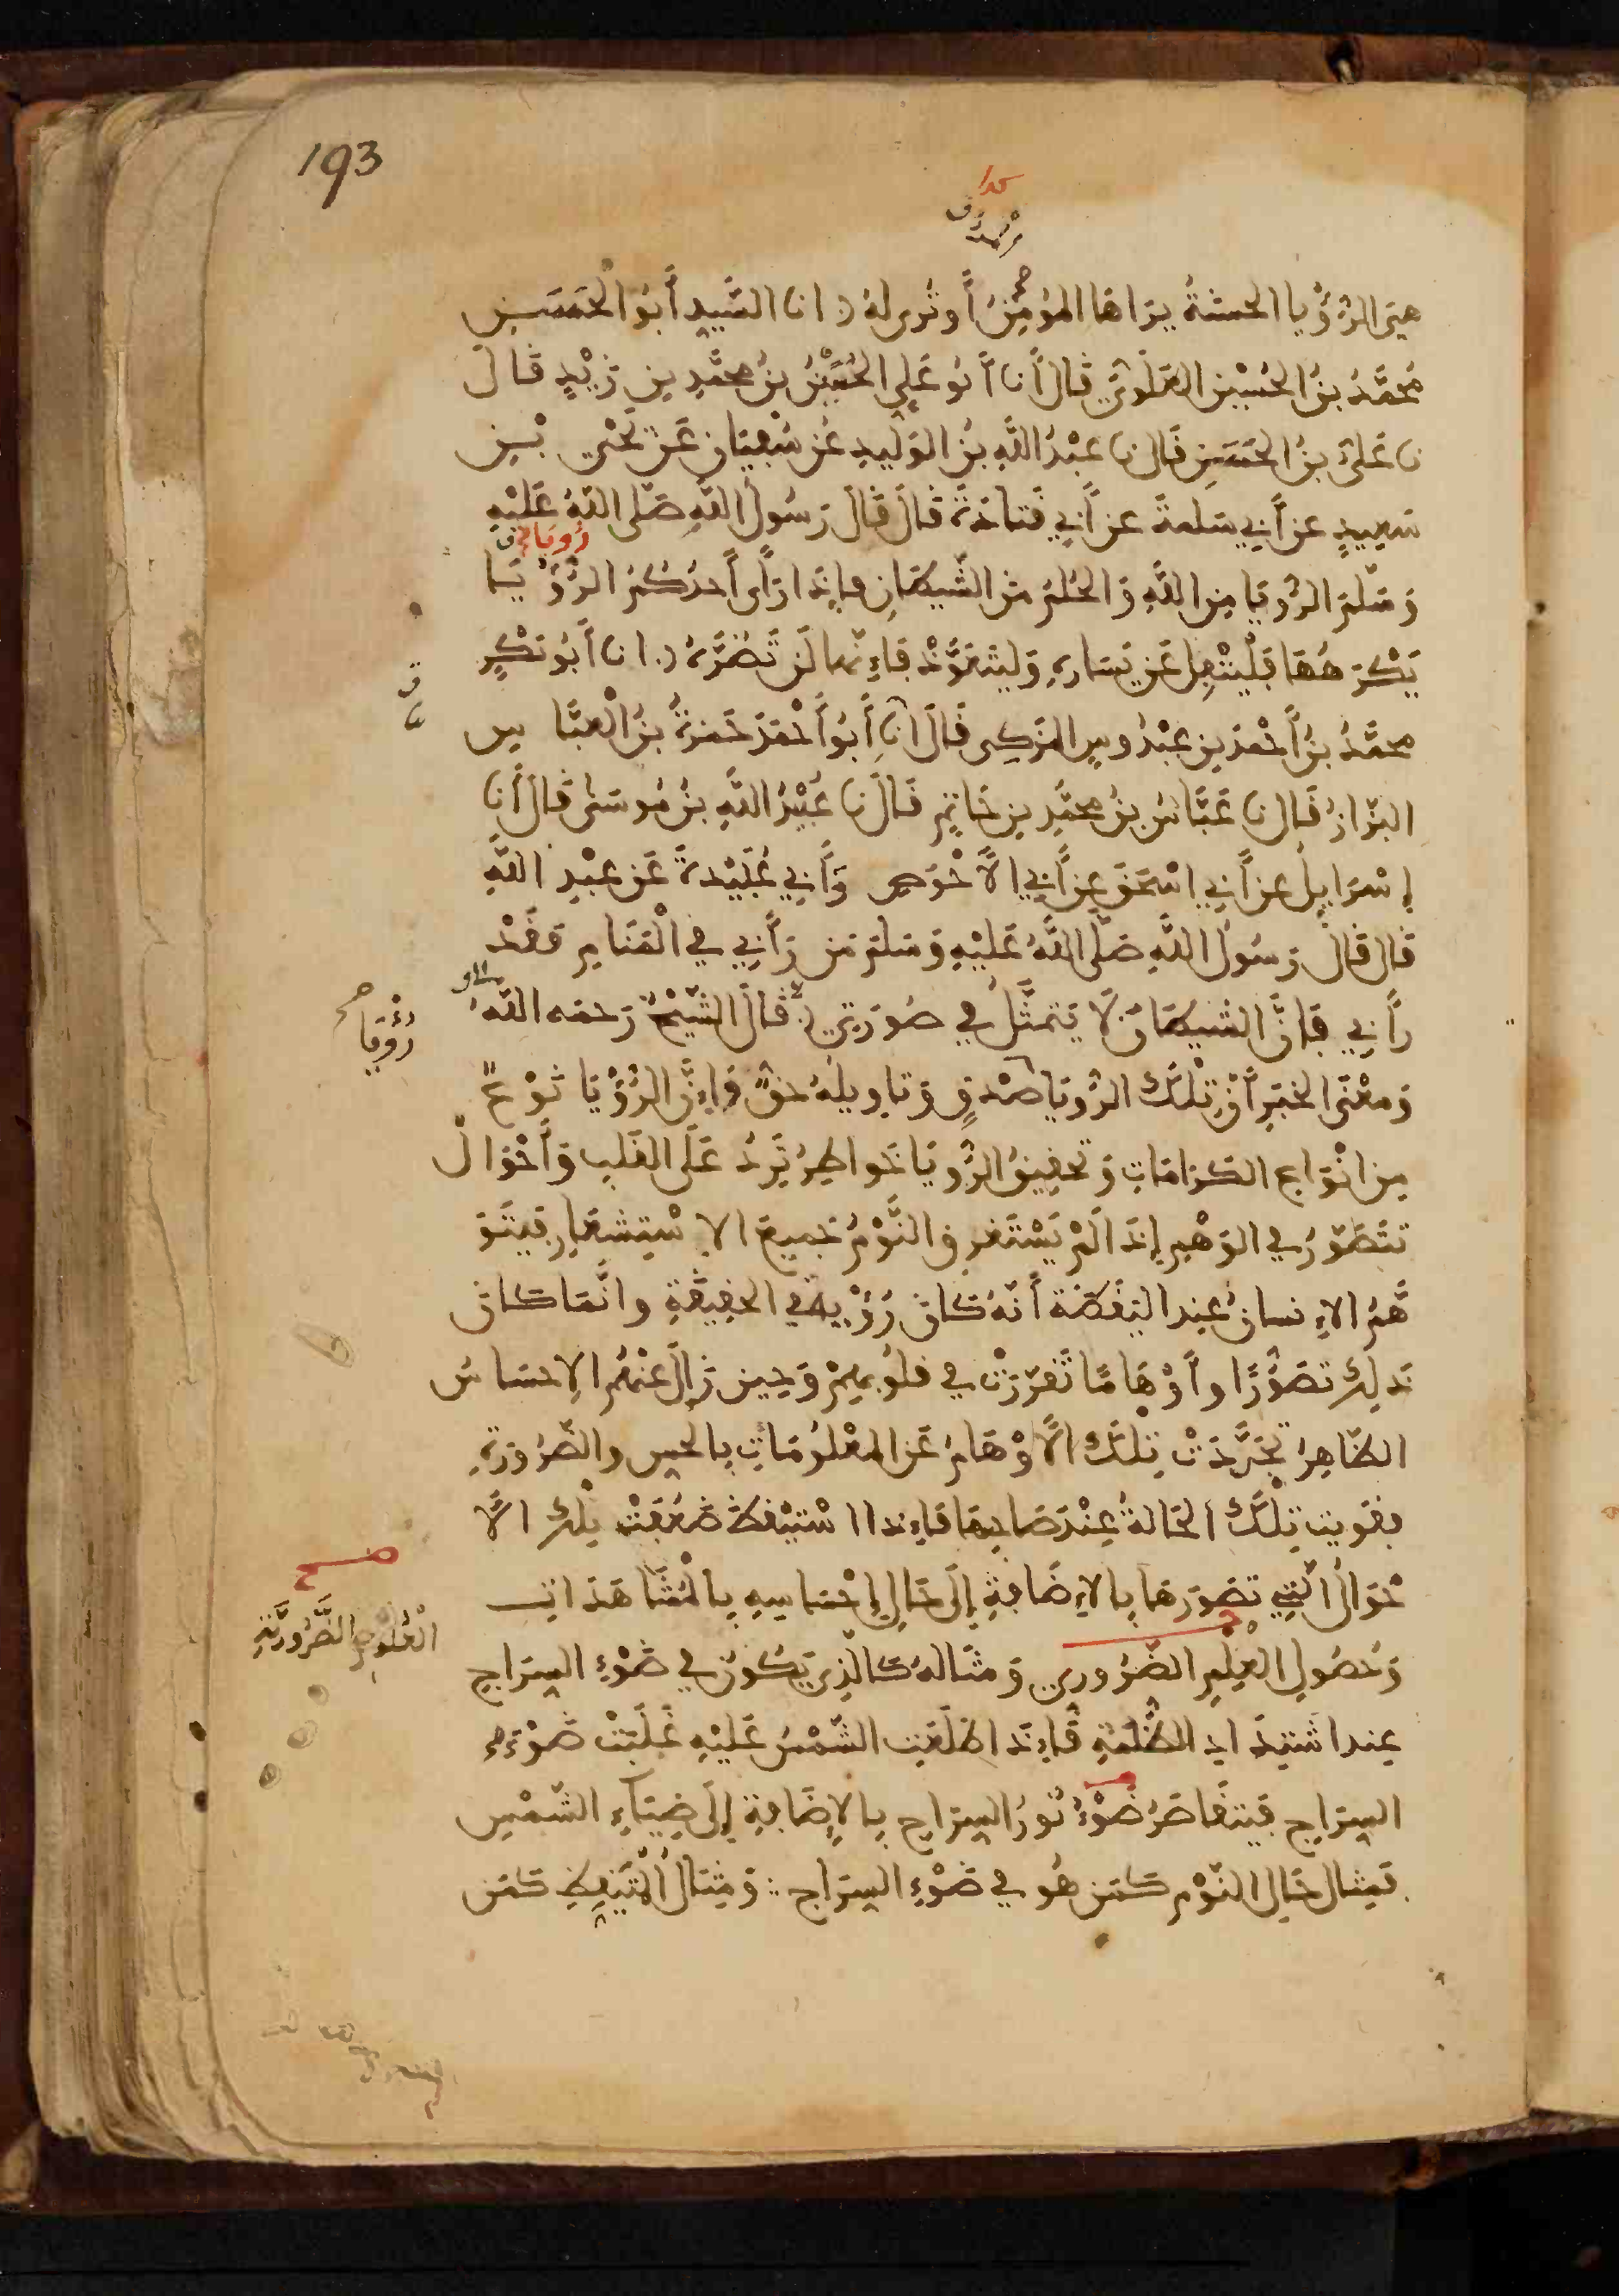 193
هِيَ الرُّؤْيا الحسنةُ يراها المؤمِنُ أو تُرى له انا السَّيد أبُو الْحَسَنِ
مُحمَّدُ بنُ الحُسيْن العَلَوِيُّ قال أنا أبُو عَلي الحُسَيْنُ بنُ محمَّدِ بنِ زَيْدٍ قَالَ
نا عَلِيُّ بنُ الحُسَيْنِ قَال نا عبْدُ اللَّهِ بنُ الوَلِيدِ عَن سُفيَان عَن يَحْيي بْنِ
سَعِيدٍ عن أَبي سَلمةَ عن أَبي قَتادَةَ قالَ قَالَ رَسُولُ اللَّهِ صَلَّى اللَّهُ عَلَيْهِ
رُؤيَا
وَسَلَّمَ الرُّؤيَا مِنَ اللَّهِ وَالحُلمُ مِنَ الشَّيطَانِ فإذَا رَأَى أحدُكُمُ الرُّؤْيَا
يَكْرَهُهَا فَلْيَتْفِل عَن يَسَارهِ وَليَتعَوَّذْ فَإِنَّها لَن تَضُرَّهُ انا أَبُو بَكْرٍ
محمَّدُ بنُ أَحْمَدَ بنِ عبْدُوسٍ المزَكي قَالَ انا أَبُو أَحْمَدَ حَمزةُ بنُ العبَّاسِ
البزَّازُ قَال نا عَبَّاسُ بنُ محمَّدِ بنِ حَاتِمٍ قَالَ نا عُبَيْدُ اللَّهِ بنُ مُوسَى قَالَ أنا
إسْرَايِلُ عن أَبي اسْحَقَ عن أَبي الأَحْوَصِ وَأَبِي عُبَيْدةَ عَن عبْدِ اللَّهِ
قَالَ قَالَ رَسُولُ اللَّهِ صَلَّى اللَّهُ عَلَيْهِ وَسَلَّمَ مَن رَأَنِي فِي الْمَنَامِ فَقَدْ
رَأَنِي فَإنَّ الشيطَانَ لَا يَتمَثَّلُ فِي صُورَتِي قَالَ الشَّيْخُ رَحمَه اللَّهُ
رُؤْيَا
وَمعْنَى الخبَرِ أَنَّ تِلْكَ الرُّؤيَا صْدقٍ وَتاوِيلهُ حقٌّ وَإنَّ الرُّؤْيَا نَوْعٌ
مِن انْوَاعِ الكَرَامَاتِ وَتحقِيقُ الرُّؤيَا خَواطِرُ تَرِدُ عَلَى القَلبِ وَأَحْوَالٌ
تتَصَوَّرُ فِي الوَهْمِ إذَا لَمْ يَسْتَغرقِ النَّوْمُ جَميعَ الاِسْتِشْعَارِ فَيَتَوَ
هَّمُ الاِنسَانُ عِند اليَقَظَة أَنَّهُ كَانَ رُؤْيةً فِي الحقِيقَةِ وانَّمَا كَانَ
ذَلِكَ تَصَوُّرًا وأَوْهَامًا تَقرَّرَتْ فِي قلُوبهِمْ وَحِينَ زَالَ عَنْهُم الاِحسَاسُ
الظَّاهِرُ تجَرَّدَتْ تِلْكَ الأوْهَامُ عَنِ المعْلُومَاتِ بالحِسِّ والضَّرُورَةِ
فقَوِيت تِلْكَ الحَالةُ عِنْدَ صَاحِبهَا فَإذا اسْتَيْقَظَ ضَعُفَتْ تِلْكَ الأ
حْوَالُ الَّتِي تصَوَّرَهَا بِالاِضَافةِ إلَى حَالِ إحْسَاسِهِ بِالْمُشَاهَدَاتِ
الْعُلُومِ الضَّرُورِيَّةِ
وَحُصُولِ العِلْمِ الضَّرُورِيِ وَمثَالهُ كَالَّذِي يَكُونُ فِي ضَوْءِ السِّرَاجِ
عِند اشْتِدَادِ الظُّلْمَةِ فَإذَا طَلَعَتِ الشَّمْسُ عَلَيْهِ غَلَبَتْ ضَوْءَ
السِّرَاجِ فَيَتقَاصَرُ ضَوْءُ نُورُ السِّرَاجِ بِالاِضَافةِ إلَى ضِيَاءِ الشَّمْسِ
فَمثَال حَالِ النَّوْمِ كَمَن هُو فِي ضَوْءِ السِّرَاجِ وَمِثَالُ الْمُتَيَقِّظِ كَمَن